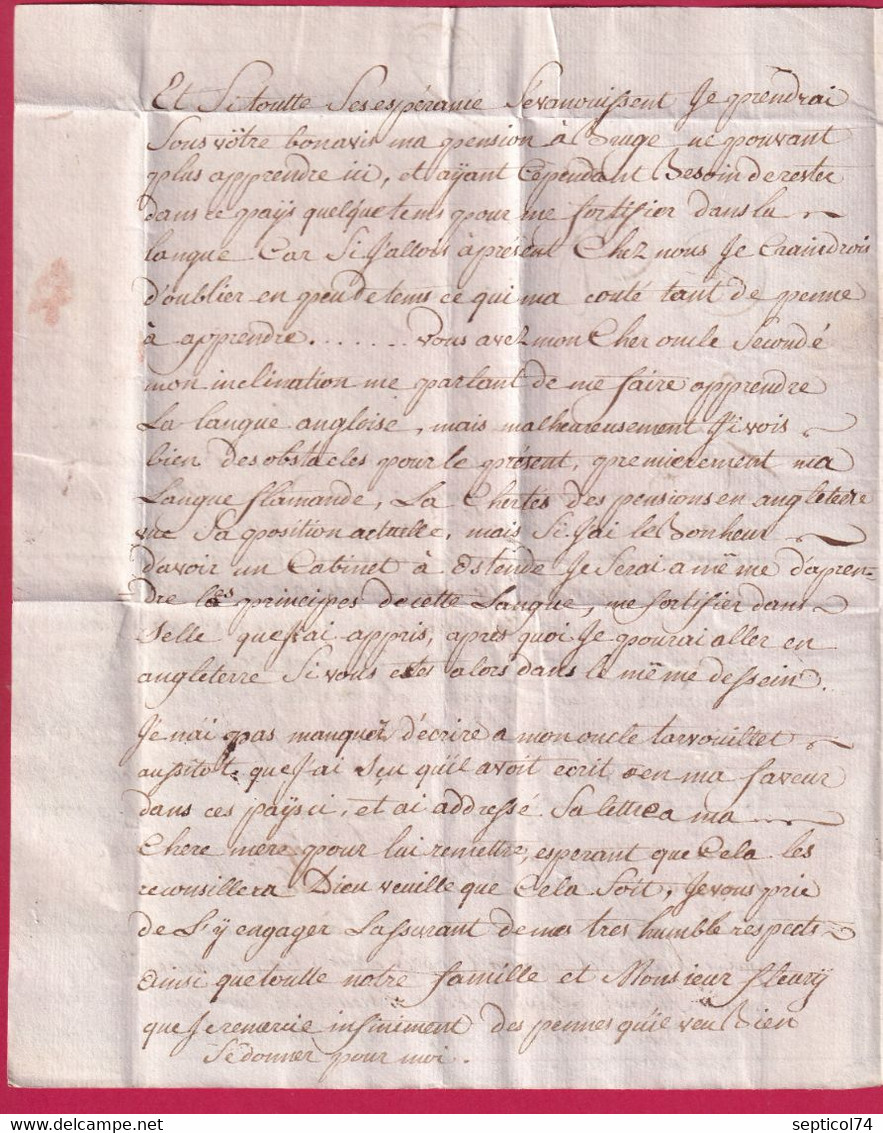 Et Si toutte Ses espéranie S'évanouissent Je prendrai
Sous vôtre bon avis ma pension à Bruge, ne pouvant
plus apprendre ici, et aÿant Cépendant Besoin de rester
dans ce païs quelque tems pour me fortifier dans la
langue. Car Si J'allois à présent Chez nous Je Craindrois
d'oublier en peu de tems ce qui ma couté tant de penne
à apprendre........ Vous avez mon Cher oncle Secondé
mon inclination me partant de me faire apprendre
La langue angloise, mais malheureusement J'i vois
bien des obstacles pour le présent, premierement ma
Langue flamande, La Chertes des pensions en angleterre
Sa position actuelle, mais Si J'ai le Bonheur
d'avoir un Cabinet à Ostende Je Serai a même d'apren-
dre les principes de cette Langue, me fortifier dans
Selle que J'ai appris, aprés quoi Je pourai aller en
angleterre Si vous etes alors dans le même dessein.
Je n'ai pas manquer d'écrire a mon oncle tarvouillet
aussitot que J'ai Sçu qu'il avoit ecrit en ma faveur
dans ces païs ci, et ai addressé Sa lettre a ma
Chere mere pour lui remettre, esperant que Cela les
reconsillera Dieu veuille que Cela Soit, Je vous prie
de L'ÿ engager L'assurant de mes tres humble respects
Ainsi que toutte notre famille et Monsieur fleurÿ
que Je remercie infiniment des pennes qu'il veu Bien
Sé donner pour moi.
septicol74